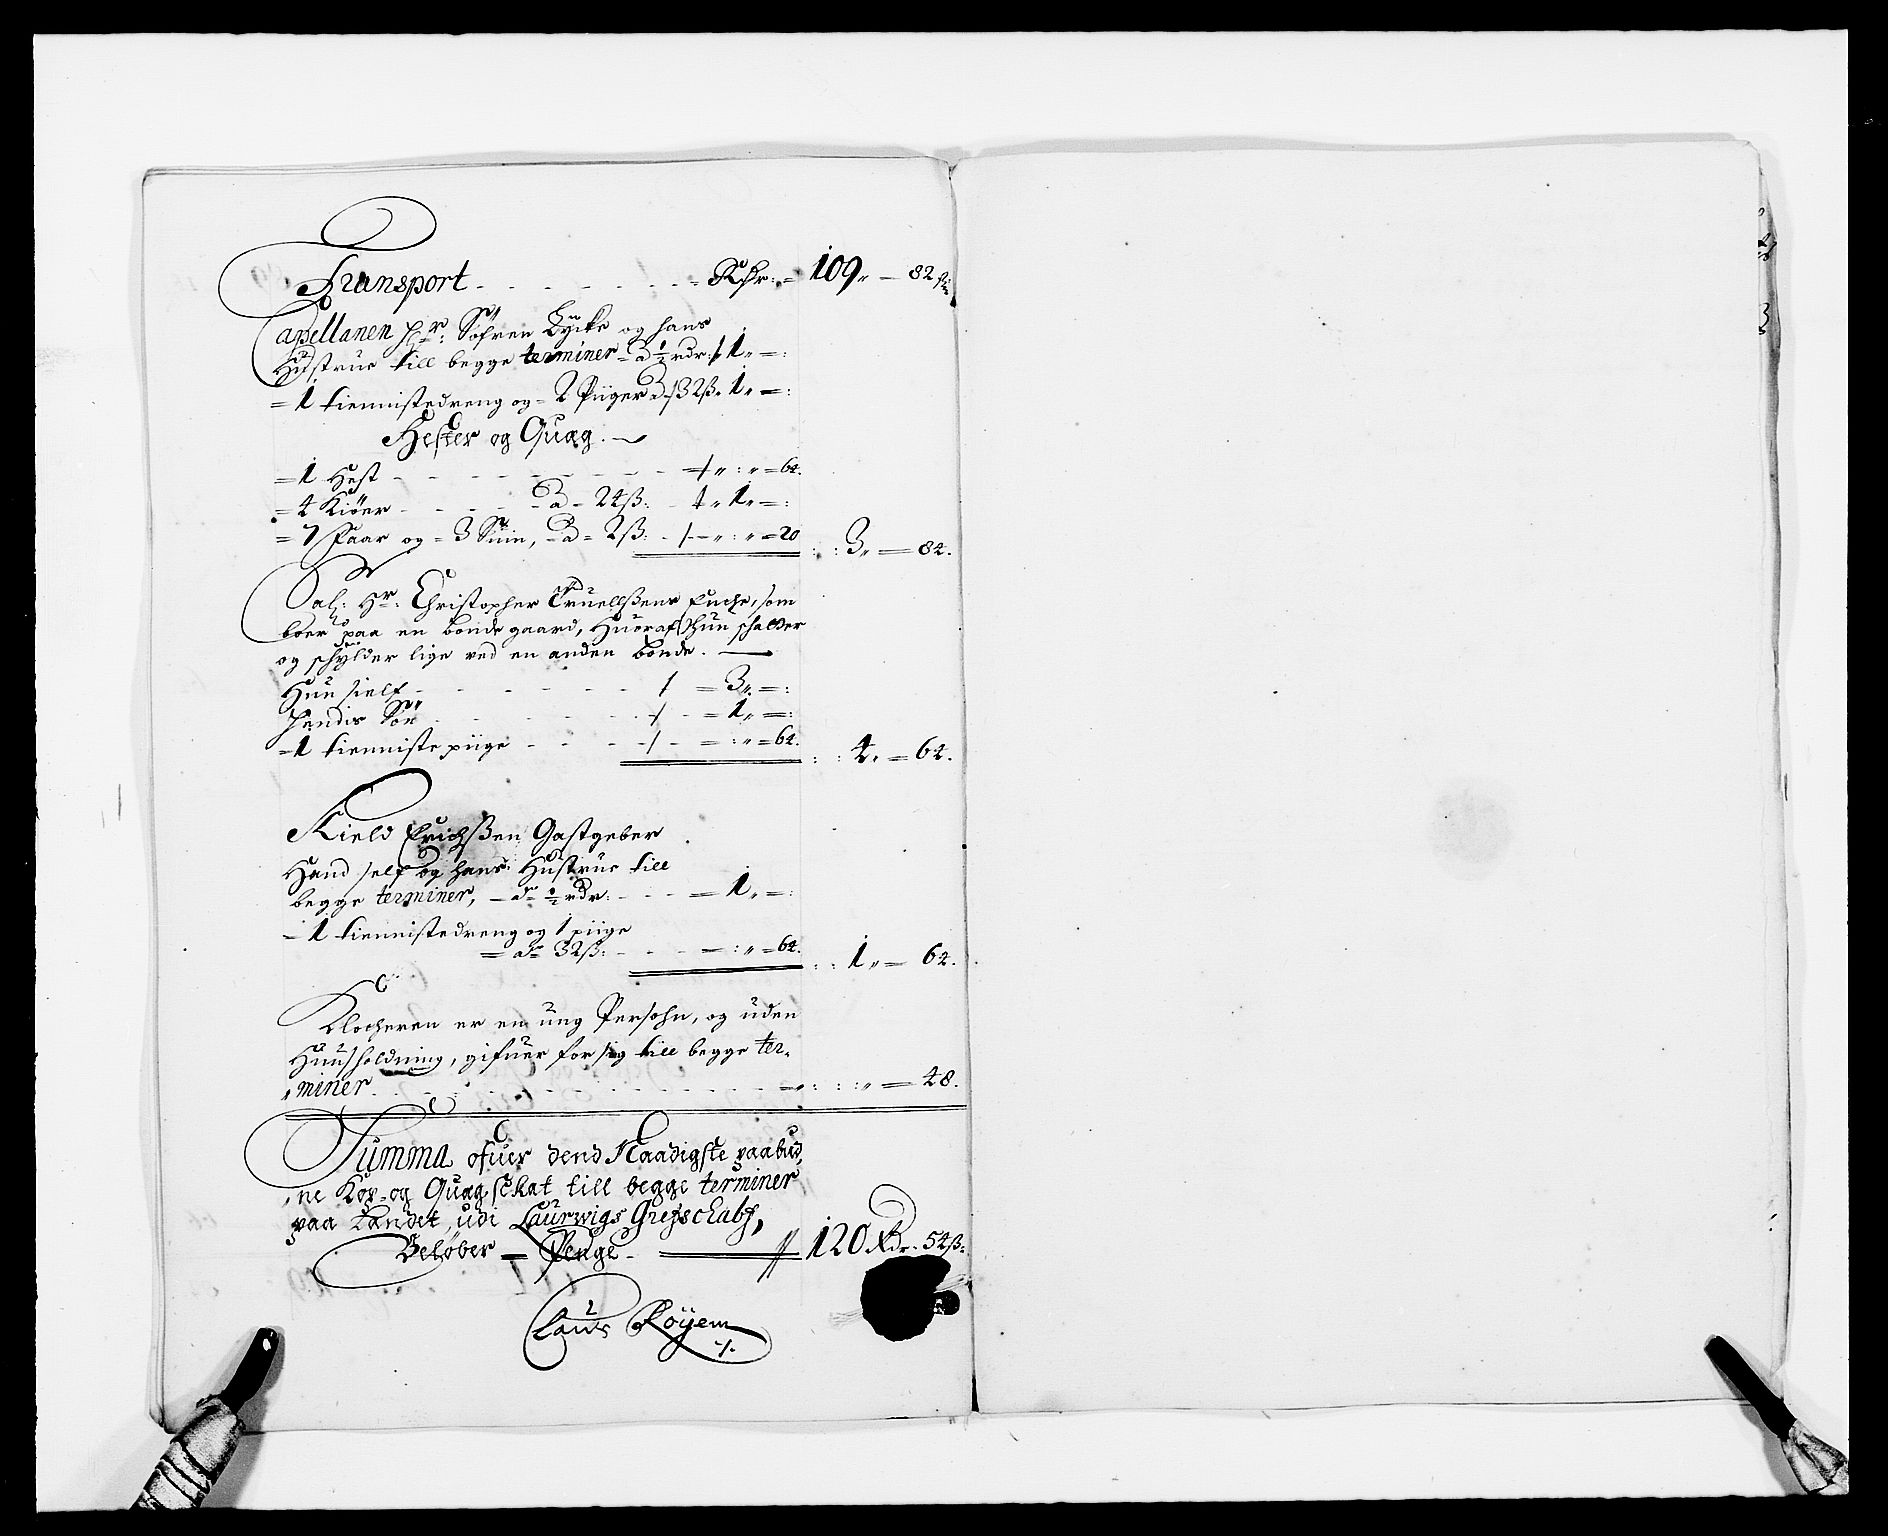 Transport - - - - - - - Rdr: = 109 „ — 82 ß
Capellanen Hr: Søfren Lycke og hans
Hustrue till begge terminer = a ½ rdr: / 1 „ = :
= 1 tiennistedreng og = 2 Piiger a 32 ß „ 1 „ = :
Hester og Quæg. —
= 1 Hest - - - - - - - - / „ : „ = 64.
= 4 Kiøer - - - - a = 24 ß: - / „ 1 „ = :
= 7 Faar og = 3 Suin, = a = 2 ß: - / — „ : „ = 20 : : 3 „ = 84.
Sal: Hr: Christopher Truellßens Encke, som
boer paa en bonde gaard, Huoraf hun schatter
og schylder lige ved en anden bonde. —
Hun sielf - - - - - - / = 3 „ = :
Hendis Søn - - - - - - / - = 1 „ = :
= 1 tienniste piige - - - - / - = : „ = 64. : : 4 „ = 64.
Kield Erichßen Gastgeber
Hand self og hans Hustrue till
begge terminer, = a ½ rdr: - - - = 1 „ = :
= 1 tiennistedreng og 1 piige
= a 32 ß: - - - = : „ = 64. : : 1 „ = 64.
Klocheren er en ung Persohn, og uden
Huusholdning, gifuer for sig till begge ter-
„miner. - - - - - - - - - - - = „ : : „ = 48.
Summa ofuer dend Naadigste paabud,
„ne Kop- og Quæg, sckat till begge terminer
paa Landet, udi Laurwigs Grefschabf,
Beløber = Penge - 120 Rdr. 54 ß:
Laurs Røyem